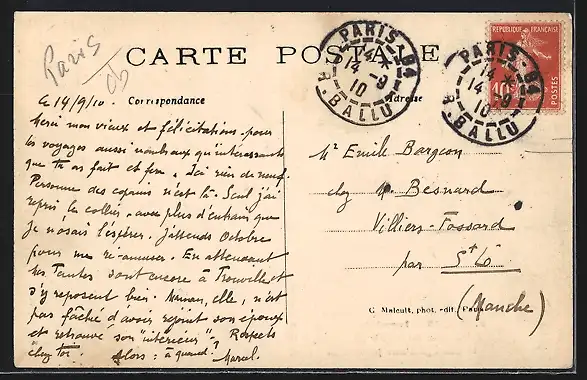 Paris
CARTE POSTALE
Correspondance
Adresse
PARIS 94
14
14-9
10
R. BALLU
PARIS 94
14
14-9
10
R. BALLU
REPUBLIQUE FRANÇAISE
10
POSTES
Ce 14/9/10.
Merci mon vieux et félicitations pour
les voyages aussi nombreux qu'intéressants
que tu as fait et fera. Ici rien de neuf.
Personne des copains n'est là. Seul j'ai
repris le collier, avec plus d'entrain que
je n'osais l'espérer. J'attends Octobre
pour me ré-amuser. En attendant
mes Tantes sont encore à Trouville et
s'y reposent bien. Maman, elle, n'est
pas fâché d'avoir rejoint son époux
et retrouvé son "intérieur". Respects
chez toi. Alors : à quand? Marcel.
Mr Emile Bargeon
chez M. Besnard
Villiers-Fossard
par St Lô
(Manche)
C. Malcuit, phot.-édit. Paris